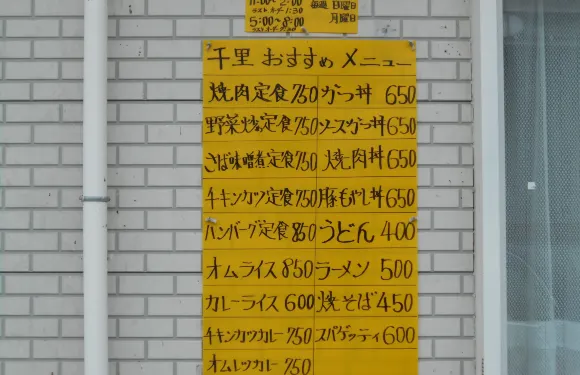 11:00~2:00
ラストオーダー1:30
5:00~8:00
毎週 日曜日
月曜日
千里 おすすめ メニュー
焼肉定食 750 かつ丼 650
野菜炒め定食 750 ソースかつ丼 650
さば味噌煮定食 750 焼肉丼 650
チキンカツ定食 750 豚もやし丼 650
ハンバーグ定食 850 うどん 400
オムライス 850 ラーメン 500
カレーライス 600 焼そば 450
チキンカツカレー 750 スパゲッティ 600
オムレツカレー 750